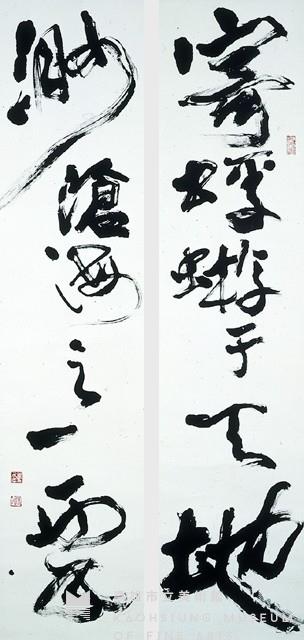 寄蜉蝣于天地
渺滄海之一粟
高雄市立美術館
KAOHSIUNG MUSEUM
OF FINE